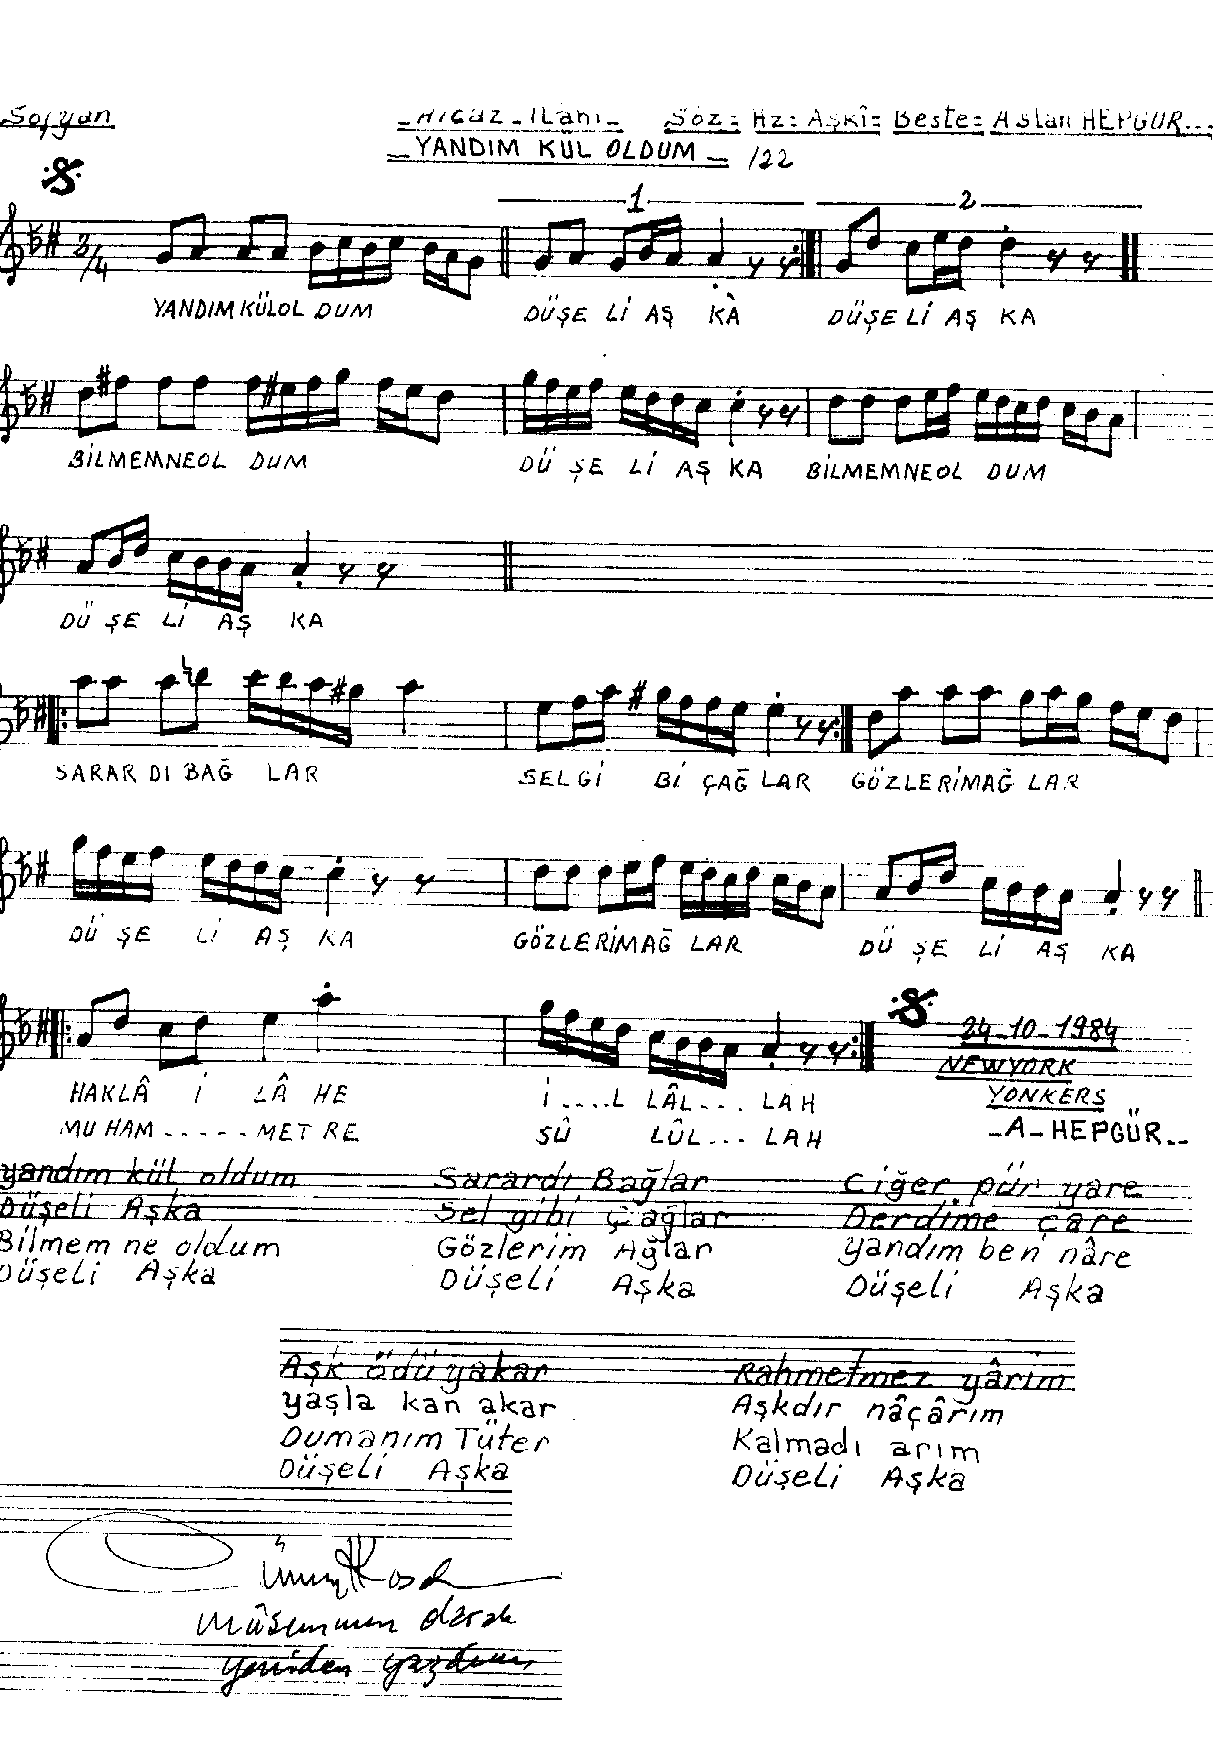 Sofyan
_Hicaz_İLâhi_ Söz= Hz= Aşkî= Beste= Aslan HEPGÜR...
_YANDIM KÜL OLDUM_ 122
1 2
2/4
YANDIM KÜLOL DUM DÜŞE Lİ AŞ KA DÜŞE Lİ AŞ KA
BİLMEMNEOL DUM DÜ ŞE Lİ AŞ KA BİLMEMNEOL DUM
DÜ ŞE Lİ AŞ KA
SARAR DI BAĞ LAR SEL Gİ Bİ ÇAĞ LAR GÖZLERİMAĞ LAR
DÜ ŞE Lİ AŞ KA GÖZLERİMAĞ LAR DÜ ŞE Lİ AŞ KA
24-10-1984
NEWYORK
YONKERS
_A_HEPGÜR..
HAKLÂ İ LÂ HE İ....L LÂL... LAH
MU HAM ..... MET RE SÛ LÛL... LAH
yandım kül oldum
Düşeli Aşka
Bilmem ne oldum
Düşeli Aşka
Sarardı Bağlar
Sel gibi Çağlar
Gözlerim Ağlar
Düşeli Aşka
Ciğer pür yare
Derdime çare
yandım ben nâre
Düşeli Aşka
Aşk ödü yakar
yaşla kan akar
Dumanım Tüter
Düşeli Aşka
Rahmetmez yârim
Aşkdır nâçârım
Kalmadı arım
Düşeli Aşka
yeniden yazdım